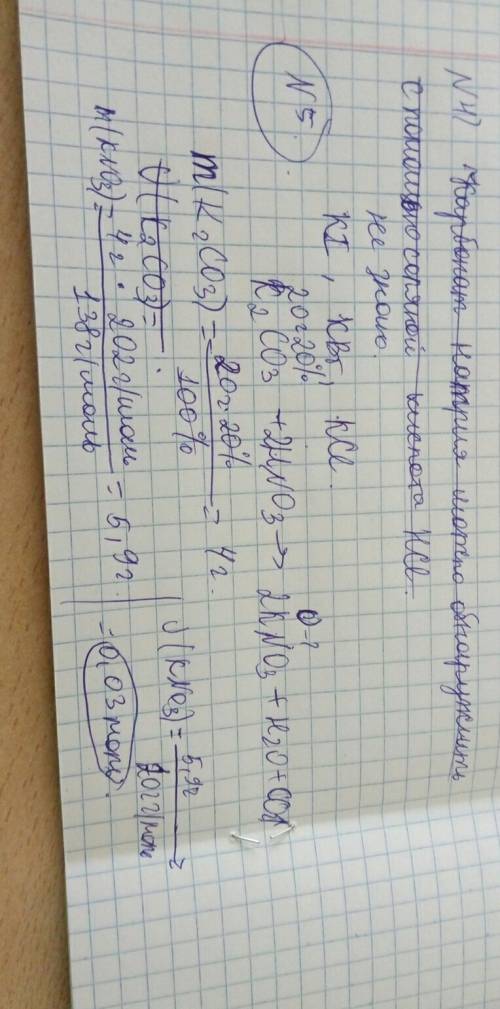 N4) Карбонат натрия можно обнаружить
с помощью соляной кислота HCl.
не знаю.
KI, KBr, KCl.
N5.
20г 20% ⍵-?
K2CO3 + 2HNO3 → 2KNO3 + H2O + CO2↑
m(K2CO3) = 20г·20% / 100% = 4г.
ν(K2CO3) =
m(KNO3) = 4г · 202г/моль / 138г/моль = 5,9г.
ν(KNO3) = 5,9г / 202г/моль =
= 0,03моль.